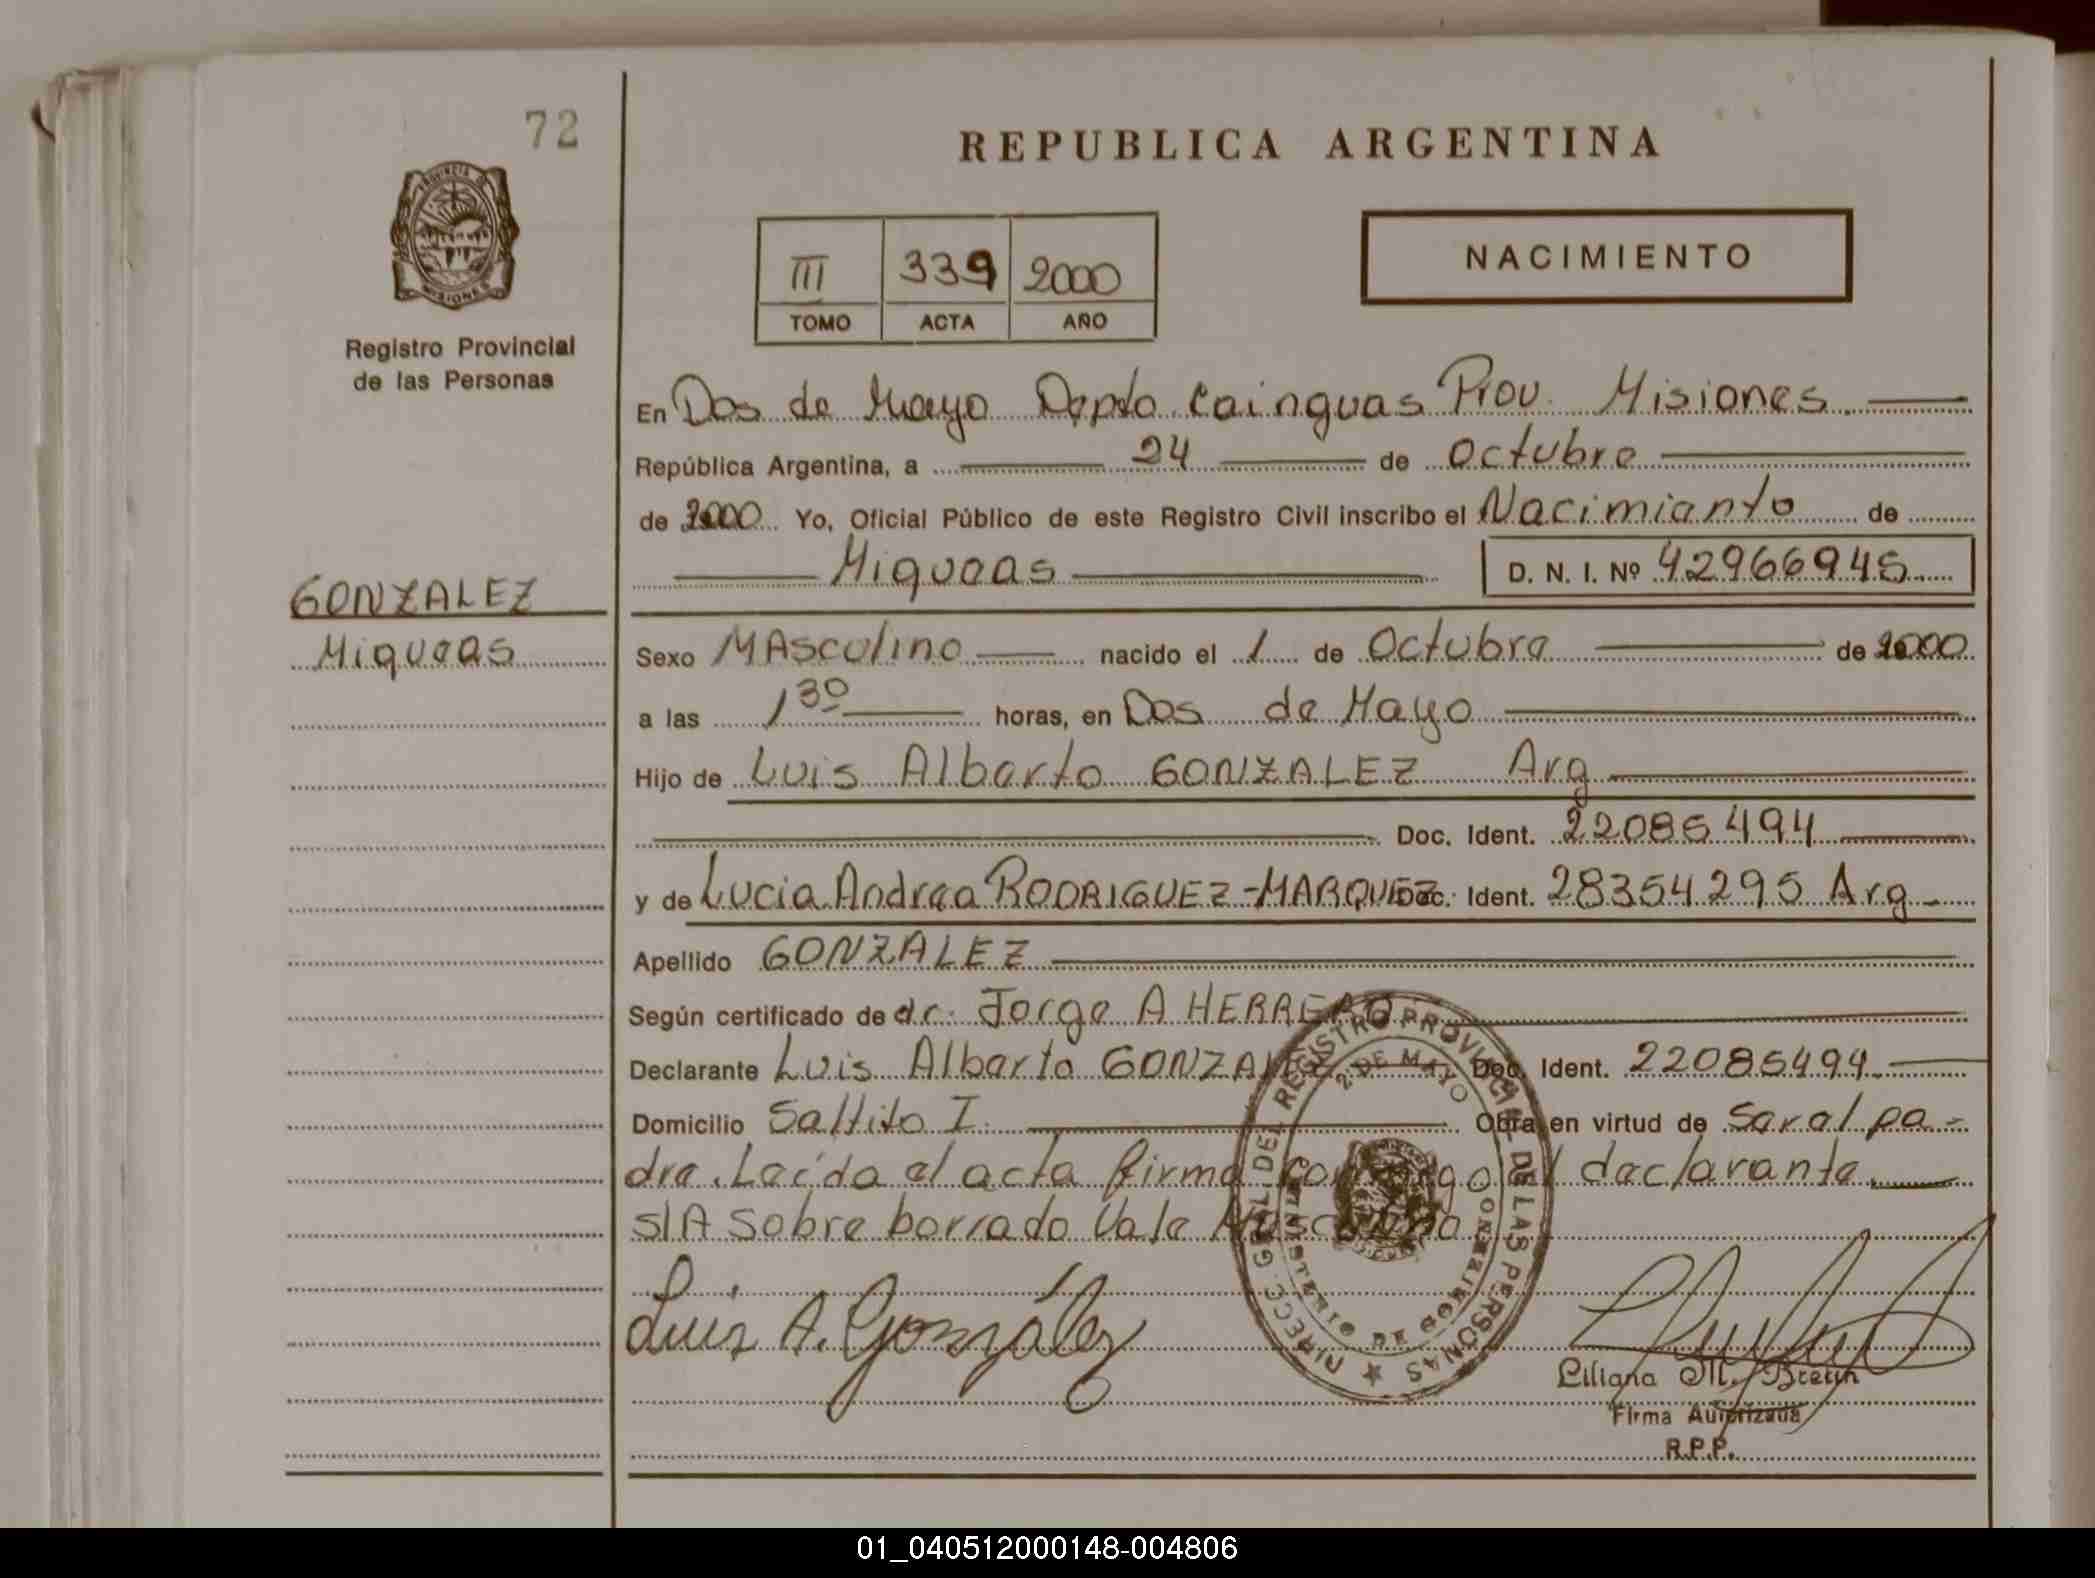 72
REPUBLICA ARGENTINA
PROVINCIA DE
MISIONES
III 339 2000
TOMO ACTA AÑO
NACIMIENTO
Registro Provincial
de las Personas
En Dos de Mayo Depto Cainguas Prov. Misiones
República Argentina, a 24 de Octubre
de 2000 Yo, Oficial Público de este Registro Civil inscribo el Nacimiento de
Miqueas D. N. I. Nº 42966945
GONZALEZ
Miqueas
Sexo MAsculino nacido el 1 de Octubre de 2000
a las 1 30 horas, en Dos de Mayo
Hijo de Luis Alberto GONZALEZ Arg
Doc. Ident. 22085494
y de Lucia Andrea RODRIGUEZ-MARQUEZ Doc. Ident. 28354295 Arg
Apellido GONZALEZ
Según certificado de dr. Jorge A HERRERO
Declarante Luis Alberto GONZALEZ Doc. Ident. 22085494
Domicilio Saltito I Obra en virtud de ser el pa-
dre. Leída el acta firma conmigo el declarante
S/A Sobre borrado Vale Masculino
DIRECC. GRAL. DEL REGISTRO PROVINCIAL DE LAS PERSONAS
2 DE MAYO
MINISTERIO DE GOBIERNO
Luis A. González
Liliana M.
Firma Autorizada
R.P.P.
01_040512000148-004806